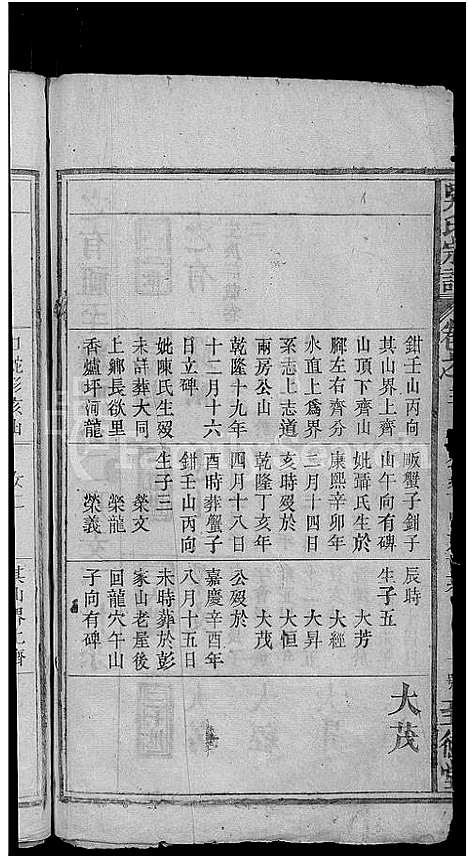 鉗壬山丙向
其山界上齊
山頂下齊山
腳左右齊分
水直上爲界
至志上志道
兩房公山
乾隆十九年
十二月十六
日立碑
妣陳氏生歿
未詳葬大同
上鄉長欲里
香爐坪河龍
畈蟹子鉗子
山午向有碑
妣聶氏生於
康熙辛卯年
三月十四日
亥時歿於
乾隆丁亥年
四月十八日
酉時葬蟹子
鉗壬山丙向
生子三
榮文
榮龍
榮義
辰時
生子五
大芳
大經
大昇
大恒
大茂
公歿於
嘉慶辛酉年
八月十五日
未時葬於彭
家山老屋後
回龍穴午山
子向有碑
大茂
氏宗譜